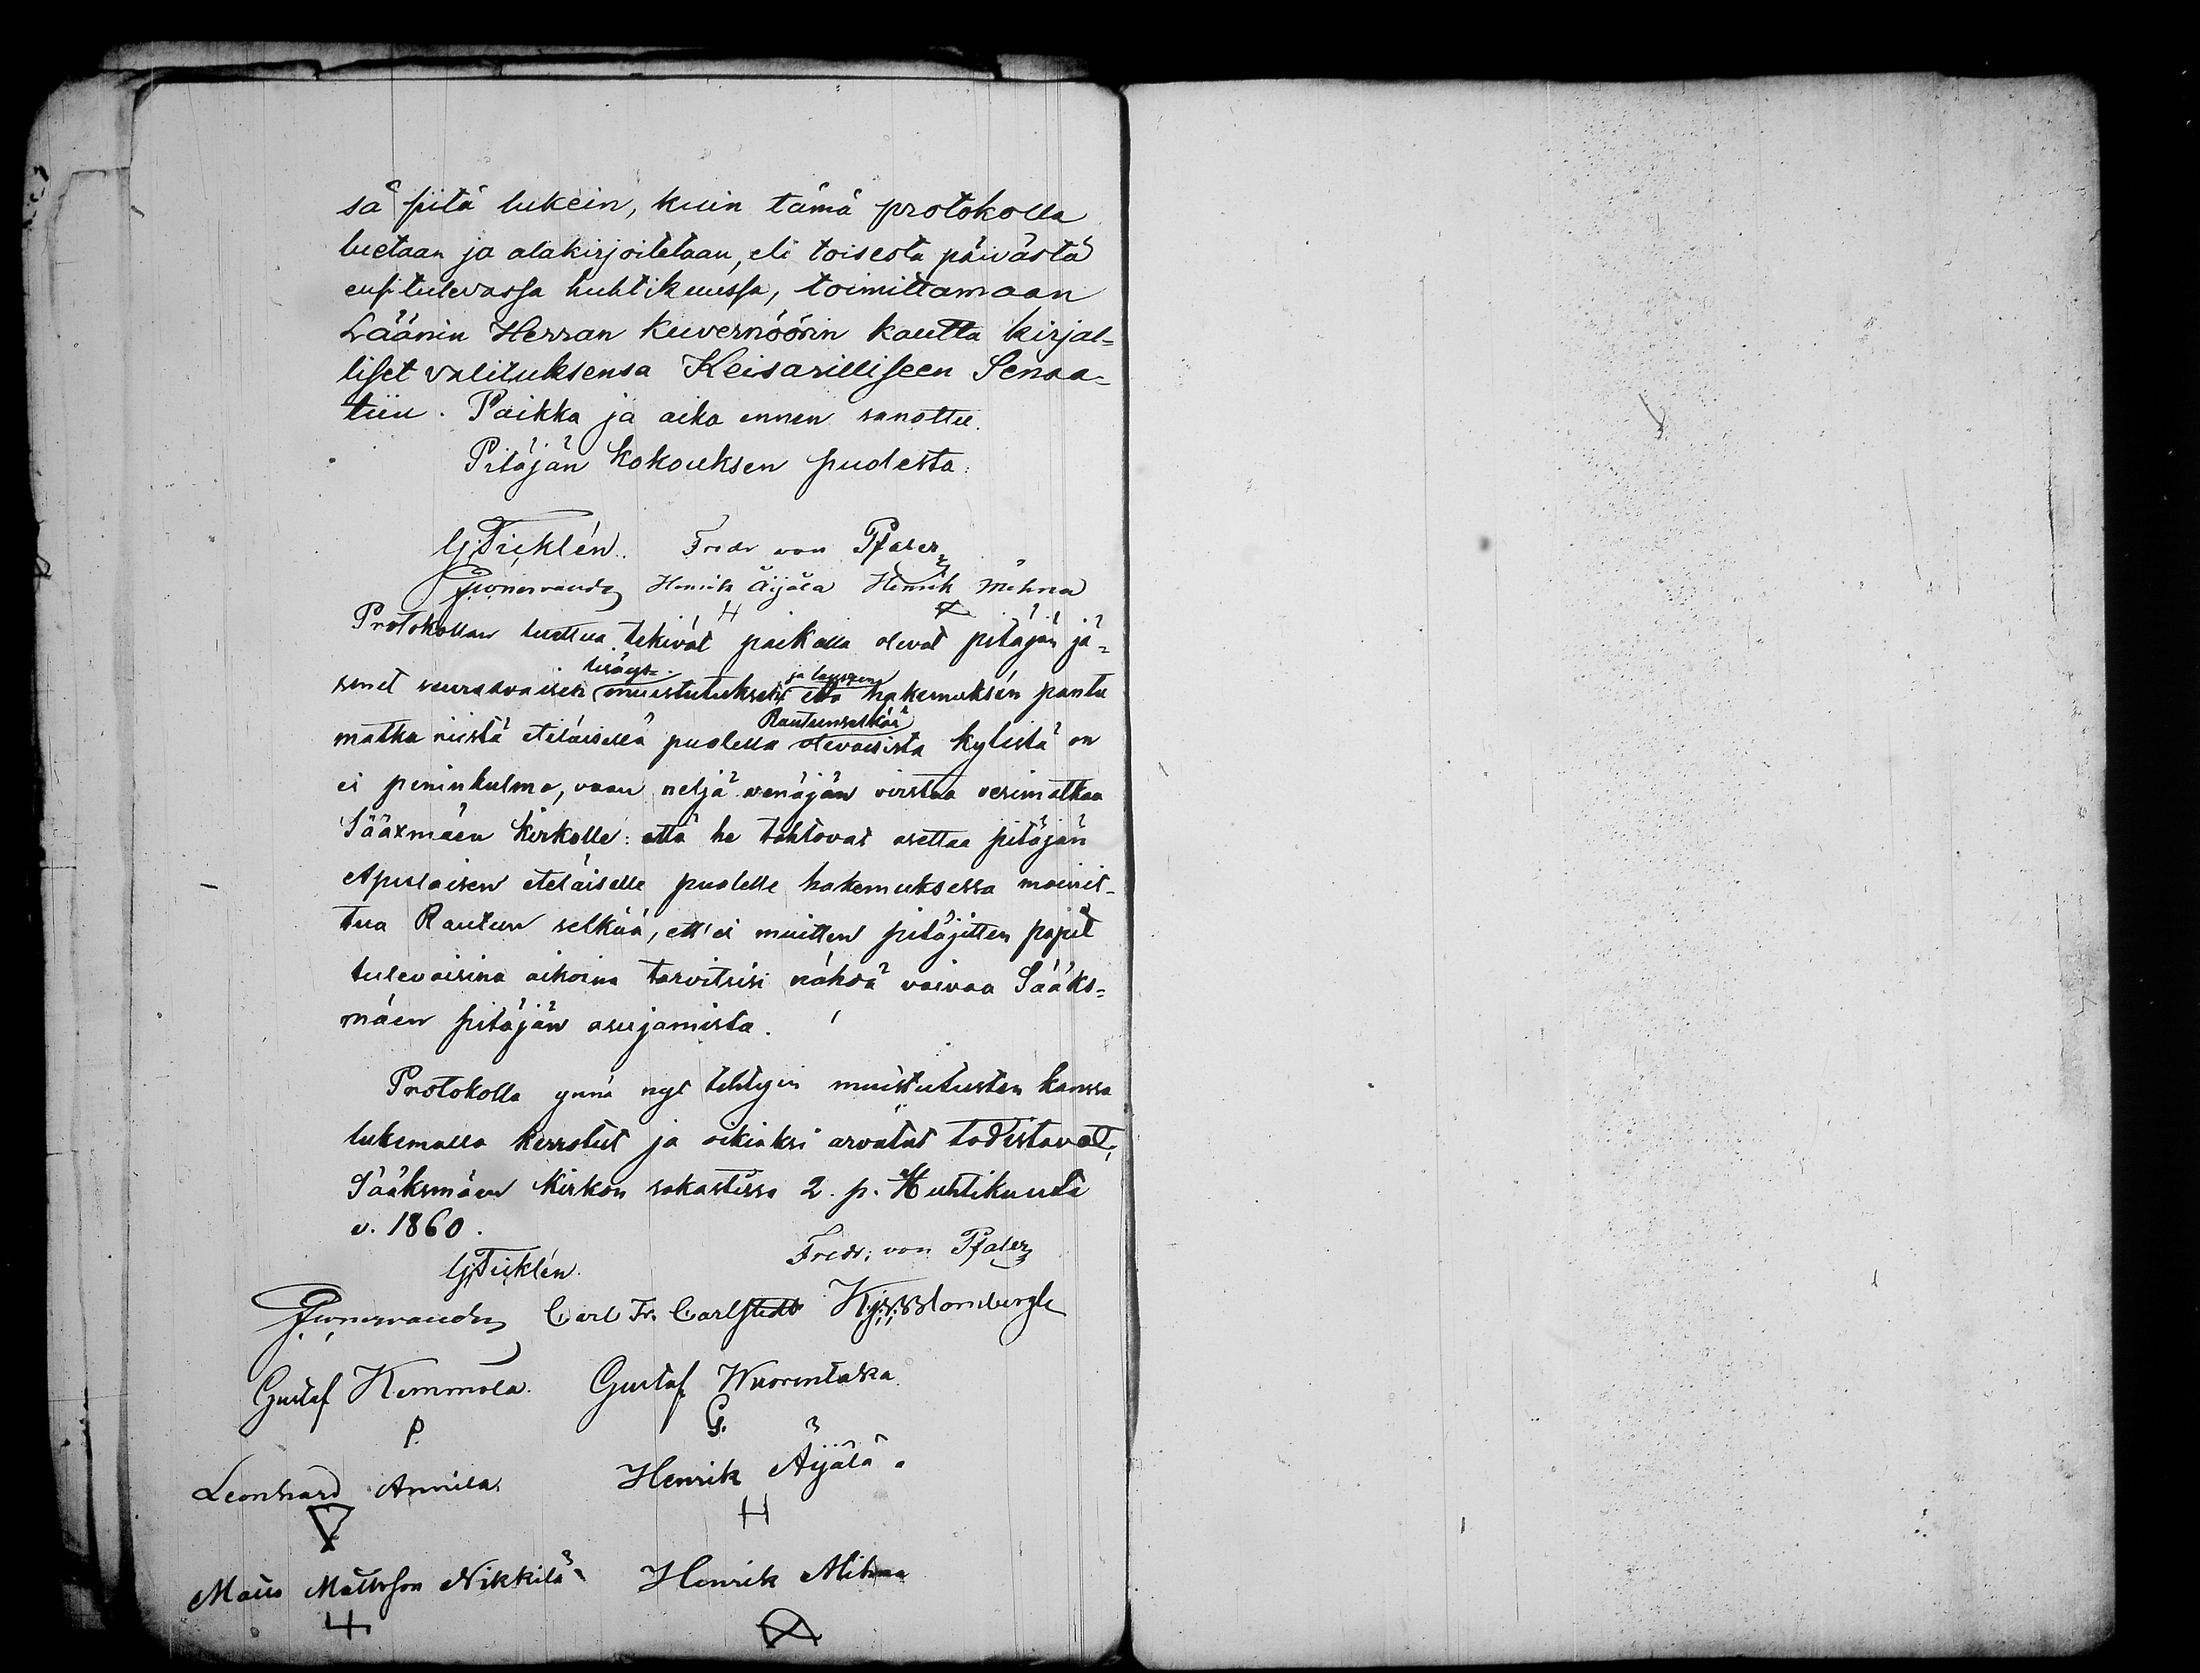 sä pitä lukein, kuin tämä protokolla
luetaan ja alakirjoitetaan, eli toisesta päivästä
ensitulevassa huhtikuussa, toimittamaan
Läänin Herran Kuvernöörin kautta kirjal=
liset valituksensa Keisarilliseen Senaa=
tiin. Paikka ja aika ennen sanottu.
Pitäjän kokouksen puolesta:
Fredr von Pfaler
Henrik Äijälä Henrik Mihna
H
Protokollan luettua tekivät paikalla olevat pitäjän jä=
senet seuraavaisen muistutuksen
lisäys=
ja lauseen
että hakemuksen pantu
Rautunselkää
matka niistä eteläisellä puolella olevaisista kylistä on
ei peninkulma, vaan neljä venäjän virstaa vesimatkaa
Sääxmäen kirkolle: että he tahtovat asettaa pitäjän
Apulaisen eteläiselle puolelle hakemuksessa mainit=
tua Rautun selkää, ett'ei muitten pitäjitten papit
tulevaisina aikoina tarvitsisi nähdä vaivaa Sääks=
mäen pitäjän asujamista.
Protokolla ynnä nyt tehtyin muistutusten kanssa
lukemalla kerrotut ja oikiaksi arvatut todistavat,
Sääksmäen Kirkon sakastissa 2. p. Huhtikuuta
v. 1860.
Fredr. von Pfaler
Carl Fr. Carlstedt Blombergh
Gustaf Kemmola. Gustaf Wuorentaka
P. G.
Leonhard Annila Henrik Äijälä
H
Matts Mattsson Nikkilä Henrik Mihna